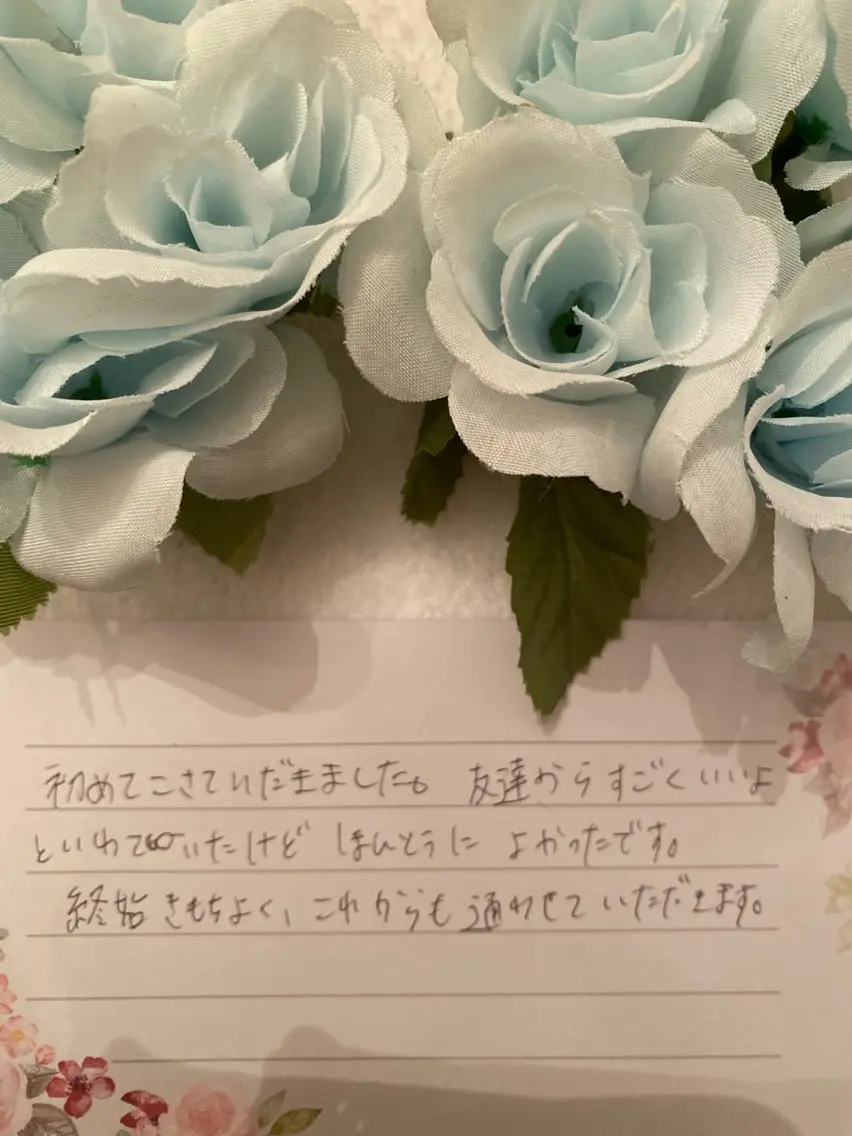 初めてこさていただきました。 友達からすごくいいよ
といわれていたけど ほんとうに よかったです。
終始 きもちよく、これからも 通わせて いただきます。